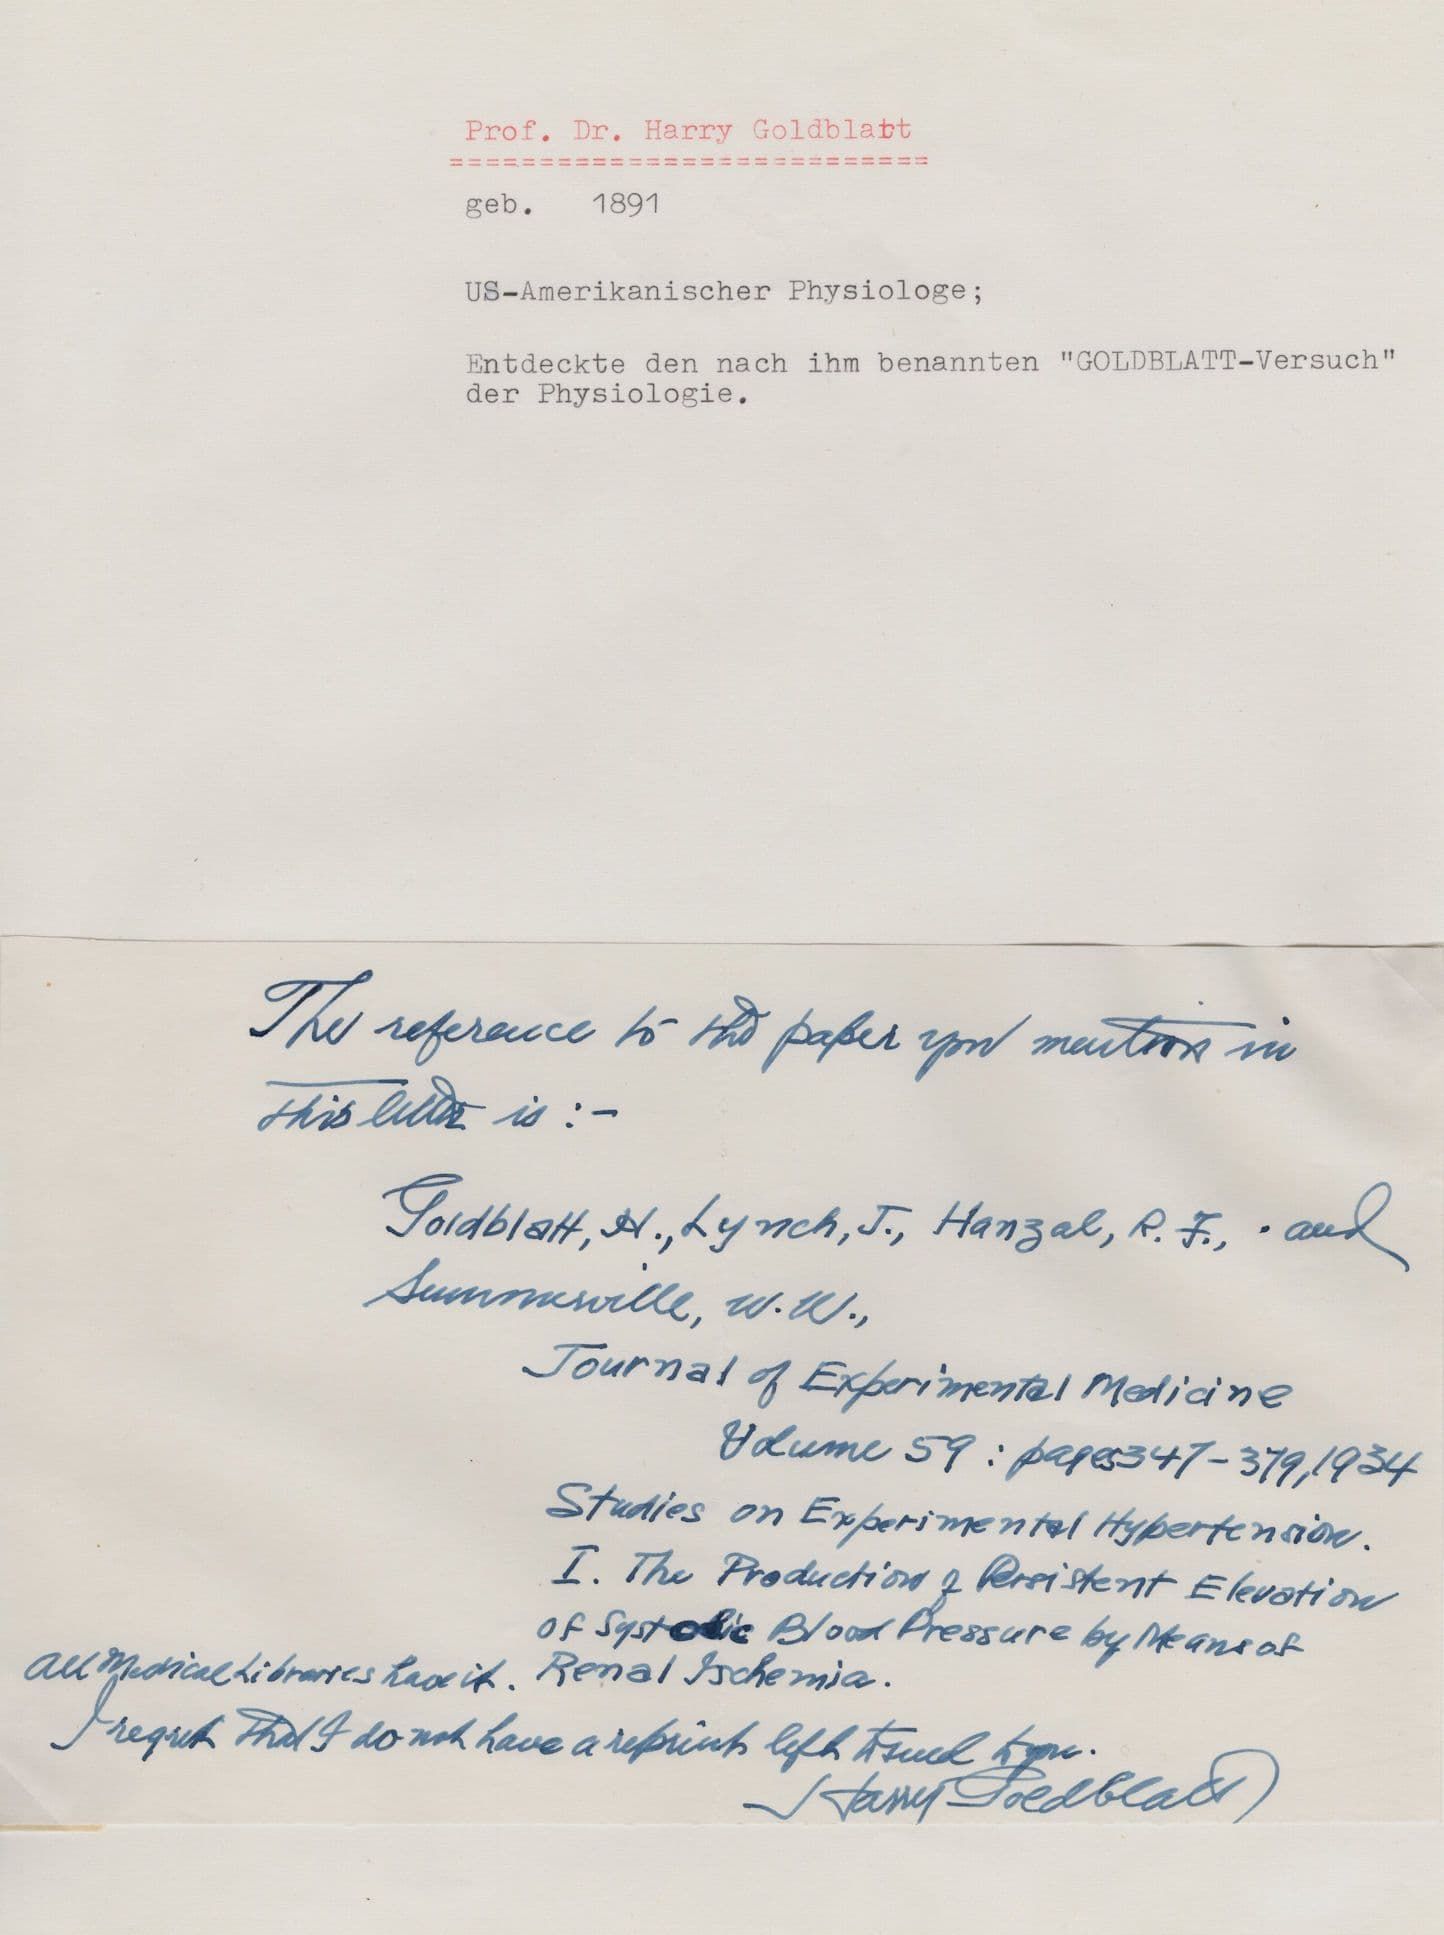 Prof. Dr. Harry Goldblatt
===========================
geb. 1891
US-Amerikanischer Physiologe;
Entdeckte den nach ihm benannten "GOLDBLATT-Versuch"
der Physiologie.
The reference to the paper you mention in
this letter is :-
Goldblatt, H., Lynch, J., Hanzal, R. F., . and
Summerville, W. W.,
Journal of Experimental Medicine
Volume 59 : pages 347-379, 1934
Studies on Experimental Hypertension.
I. The Production of Persistent Elevation
of Systolic Blood Pressure by Means of
Renal Ischemia.
All Medical Libraries have it.
I regret that I do not have a reprint left to send to you.
Harry Goldblatt